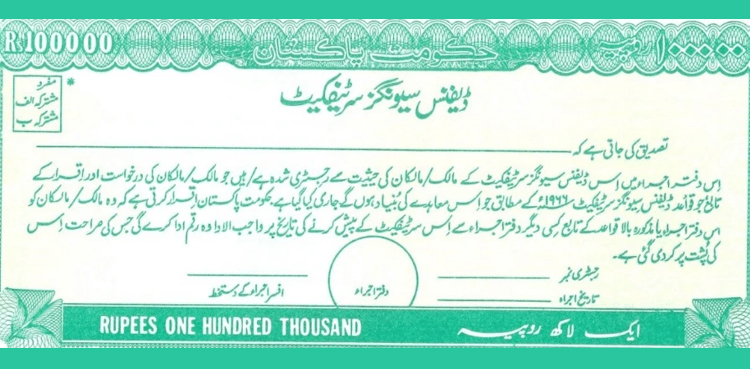 R100000 حکومت پاکستان روپیہ ۱۰۰۰۰۰
ڈیفنس سیونگز سرٹیفکیٹ
*
مفرد
مشترکہ الف
مشترکہ ب
تصدیق کی جاتی ہے کہ
اِس دفتر اجراء میں اِس ڈیفنس سیونگز سرٹیفکیٹ کے مالک/مالکان کی حیثیت سے رجسٹری شدہ ہے/ہیں جو مالک/مالکان کی درخواست اور اِقرار کے
تابع جو قواعد ڈیفنس سیونگز سرٹیفکیٹ، ۱۹۶۶ء کے مطابق جو اِس معاہدے کی بُنیاد ہوں گے جاری کیا گیا ہے، حکومت پاکستان اِقرار کرتی ہے کہ وہ مالک/مالکان کو
اس دفتر اجراء یا مذکورہ بالا قواعد کے تابع کسی دیگر دفتر اجراء سے اِس سرٹیفکیٹ کے پیش کرنے کی تاریخ پر واجب الادا وہ رقم ادا کرے گی جس کی صراحت اِس
کی پُشت پر کر دی گئی ہے۔
رجسٹری نمبر
تاریخ اجراء
دفتر اجراء
افسر اجراء کے دستخط
RUPEES ONE HUNDRED THOUSAND ایک لاکھ روپیہ